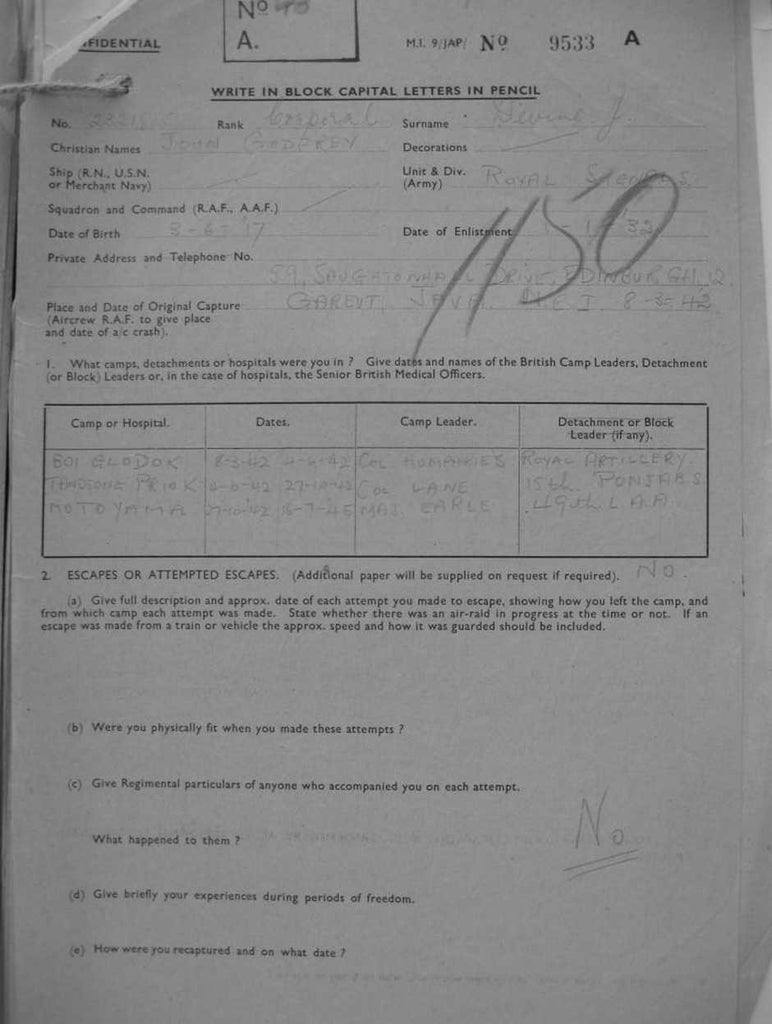 Nº
FIDENTIAL A. M.I. 9/JAP/ Nº 9533 A
WRITE IN BLOCK CAPITAL LETTERS IN PENCIL
No. Rank Corporal Surname Devine J.
Christian Names JOHN GODFREY Decorations
Ship (R.N., U.S.N. or Merchant Navy) Unit & Div. (Army) ROYAL SIGNALS.
Squadron and Command (R.A.F., A.A.F.)
1150
Date of Birth 3-6-17 Date of Enlistment 32
Private Address and Telephone No.
59, SAUGHTONHALL DRIVE, EDINBURGH, 12
Place and Date of Original Capture GAROVT, JAVA. N.E.I 8-3-42
(Aircrew R.A.F. to give place
and date of a/c crash).
1. What camps, detachments or hospitals were you in ? Give dates and names of the British Camp Leaders, Detachment
(or Block) Leaders or, in the case of hospitals, the Senior British Medical Officers.
Camp or Hospital. Dates. Camp Leader. Detachment or Block
Leader (if any).
BOI GLODOK 8-3-42 4-6-42 COL HUMPHRIES ROYAL ARTILLERY
TANDJONG PRIOK 4-6-42 27-10-42 COL LANE 15th PUNJABS
MOTOYAMA 27-10-42 18-7-45 MAJ. EARLE 49th L A A
2. ESCAPES OR ATTEMPTED ESCAPES. (Additional paper will be supplied on request if required). NO.
(a) Give full description and approx. date of each attempt you made to escape, showing how you left the camp, and
from which camp each attempt was made. State whether there was an air-raid in progress at the time or not. If an
escape was made from a train or vehicle the approx. speed and how it was guarded should be included.
(b) Were you physically fit when you made these attempts ?
(c) Give Regimental particulars of anyone who accompanied you on each attempt.
No
What happened to them ?
(d) Give briefly your experiences during periods of freedom.
(e) How were you recaptured and on what date ?